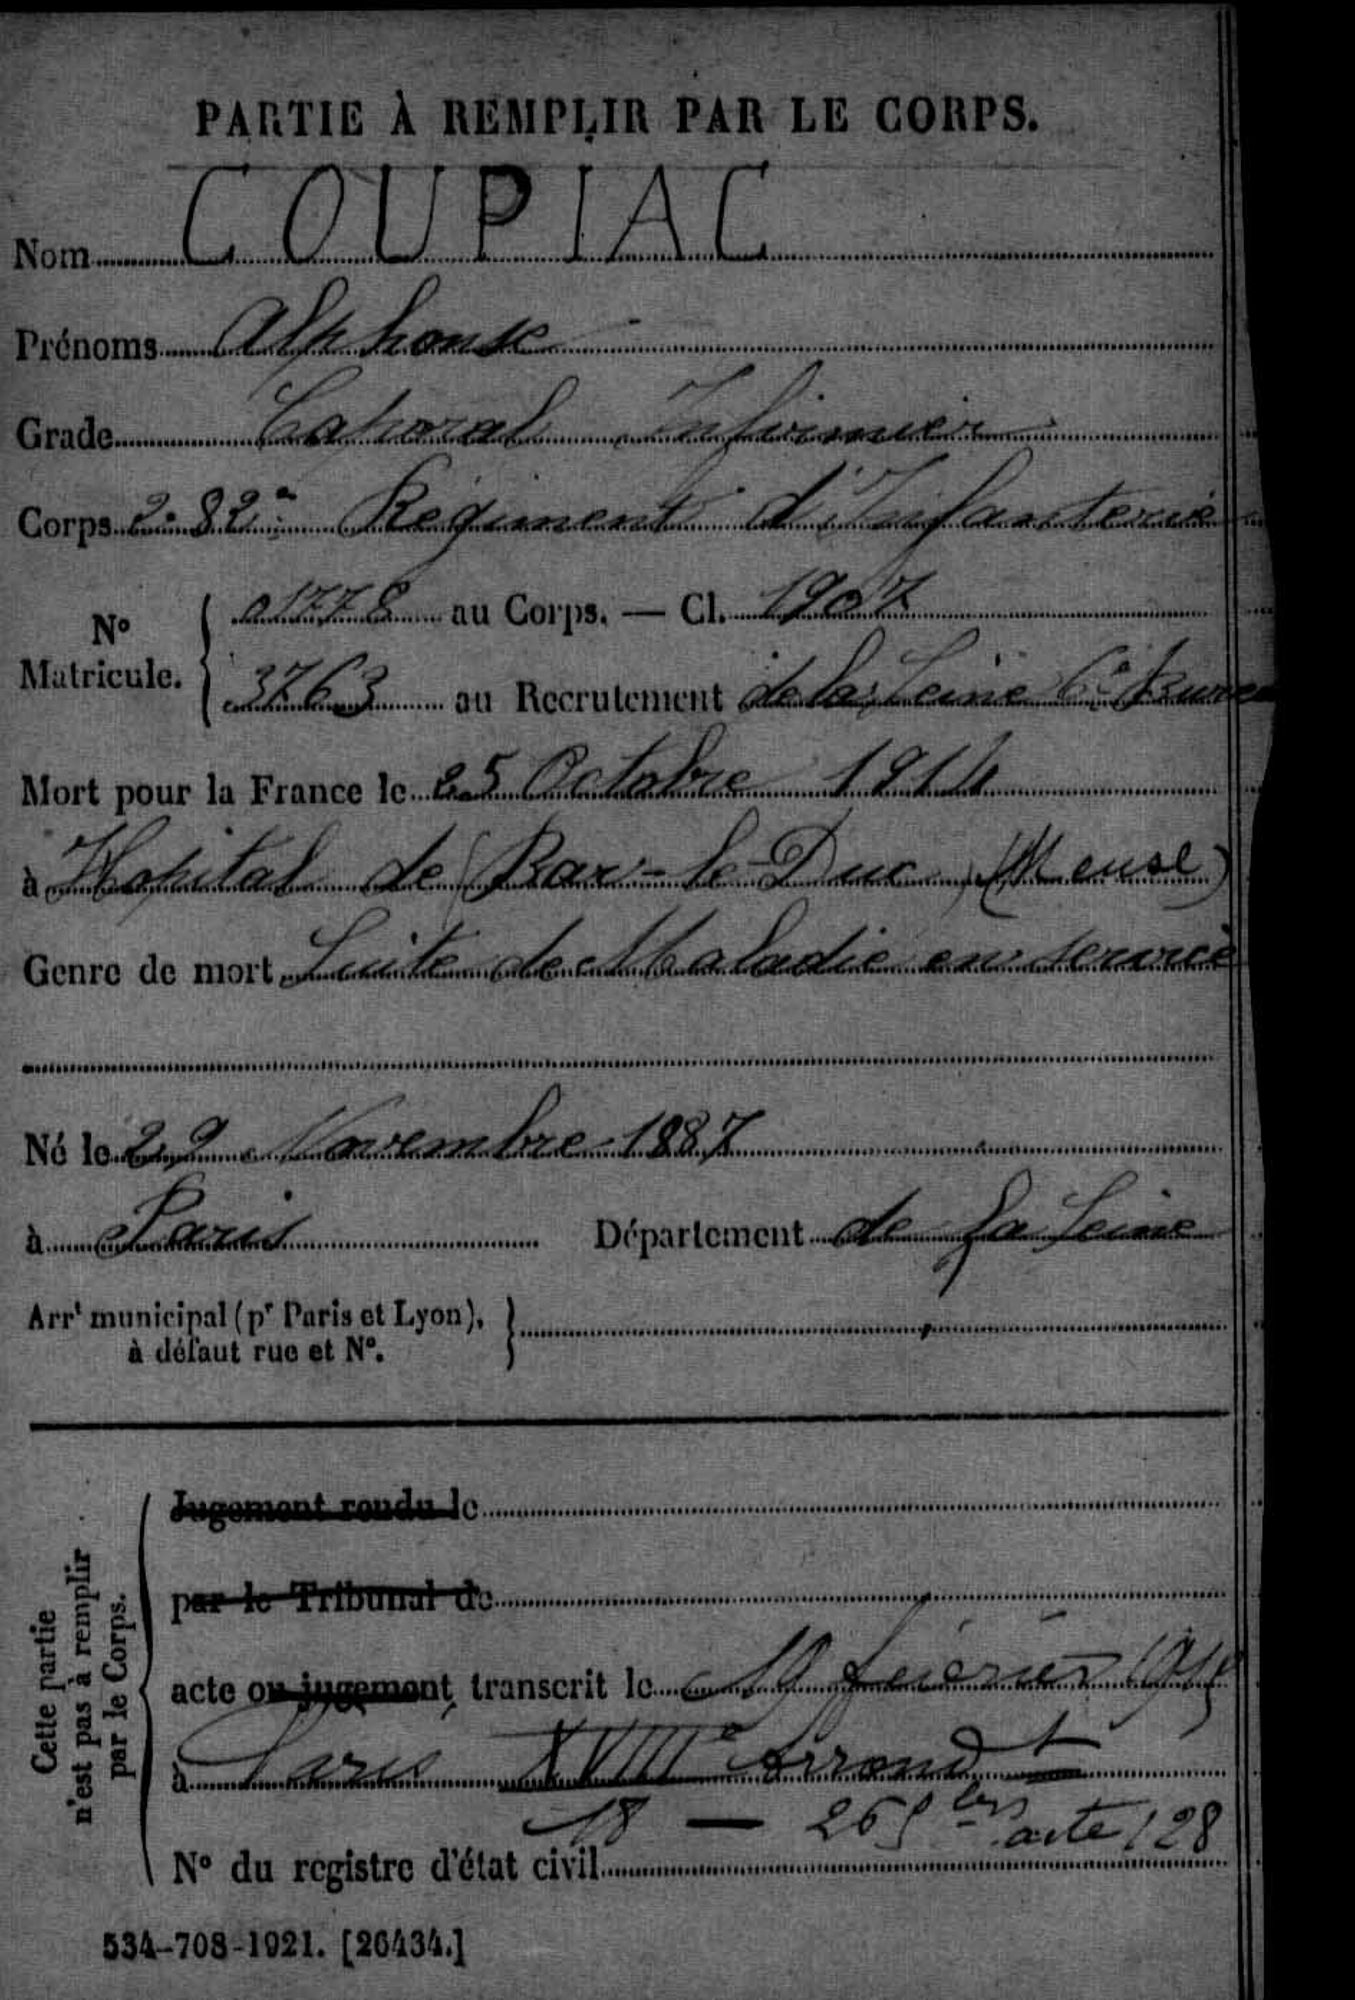 PARTIE À REMPLIR PAR LE CORPS.
Nom COUPIAC
Prénoms Alphonse
Grade Caporal Infirmier
Corps 282e Régiment d'Infanterie
No Matricule. 01778 au Corps. — Cl. 1907
3763 au Recrutement de la Seine 6e Bureau
Mort pour la France le 25 Octobre 1914
à Hopital de Bar-le-Duc (Meuse)
Genre de mort Suite de Maladie en service
Né le 29 Novembre 1887
à Paris Département de la Seine
Arrt municipal (pr Paris et Lyon),
à défaut rue et No.
Cette partie
n'est pas à remplir
par le Corps.
Jugement rendu le
par le Tribunal de
acte ou jugement transcrit le 19 février 1915
à Paris XVIIIe Arrondt
18 — acte 128
No du registre d'état civil
534-708-1921. [26434.]